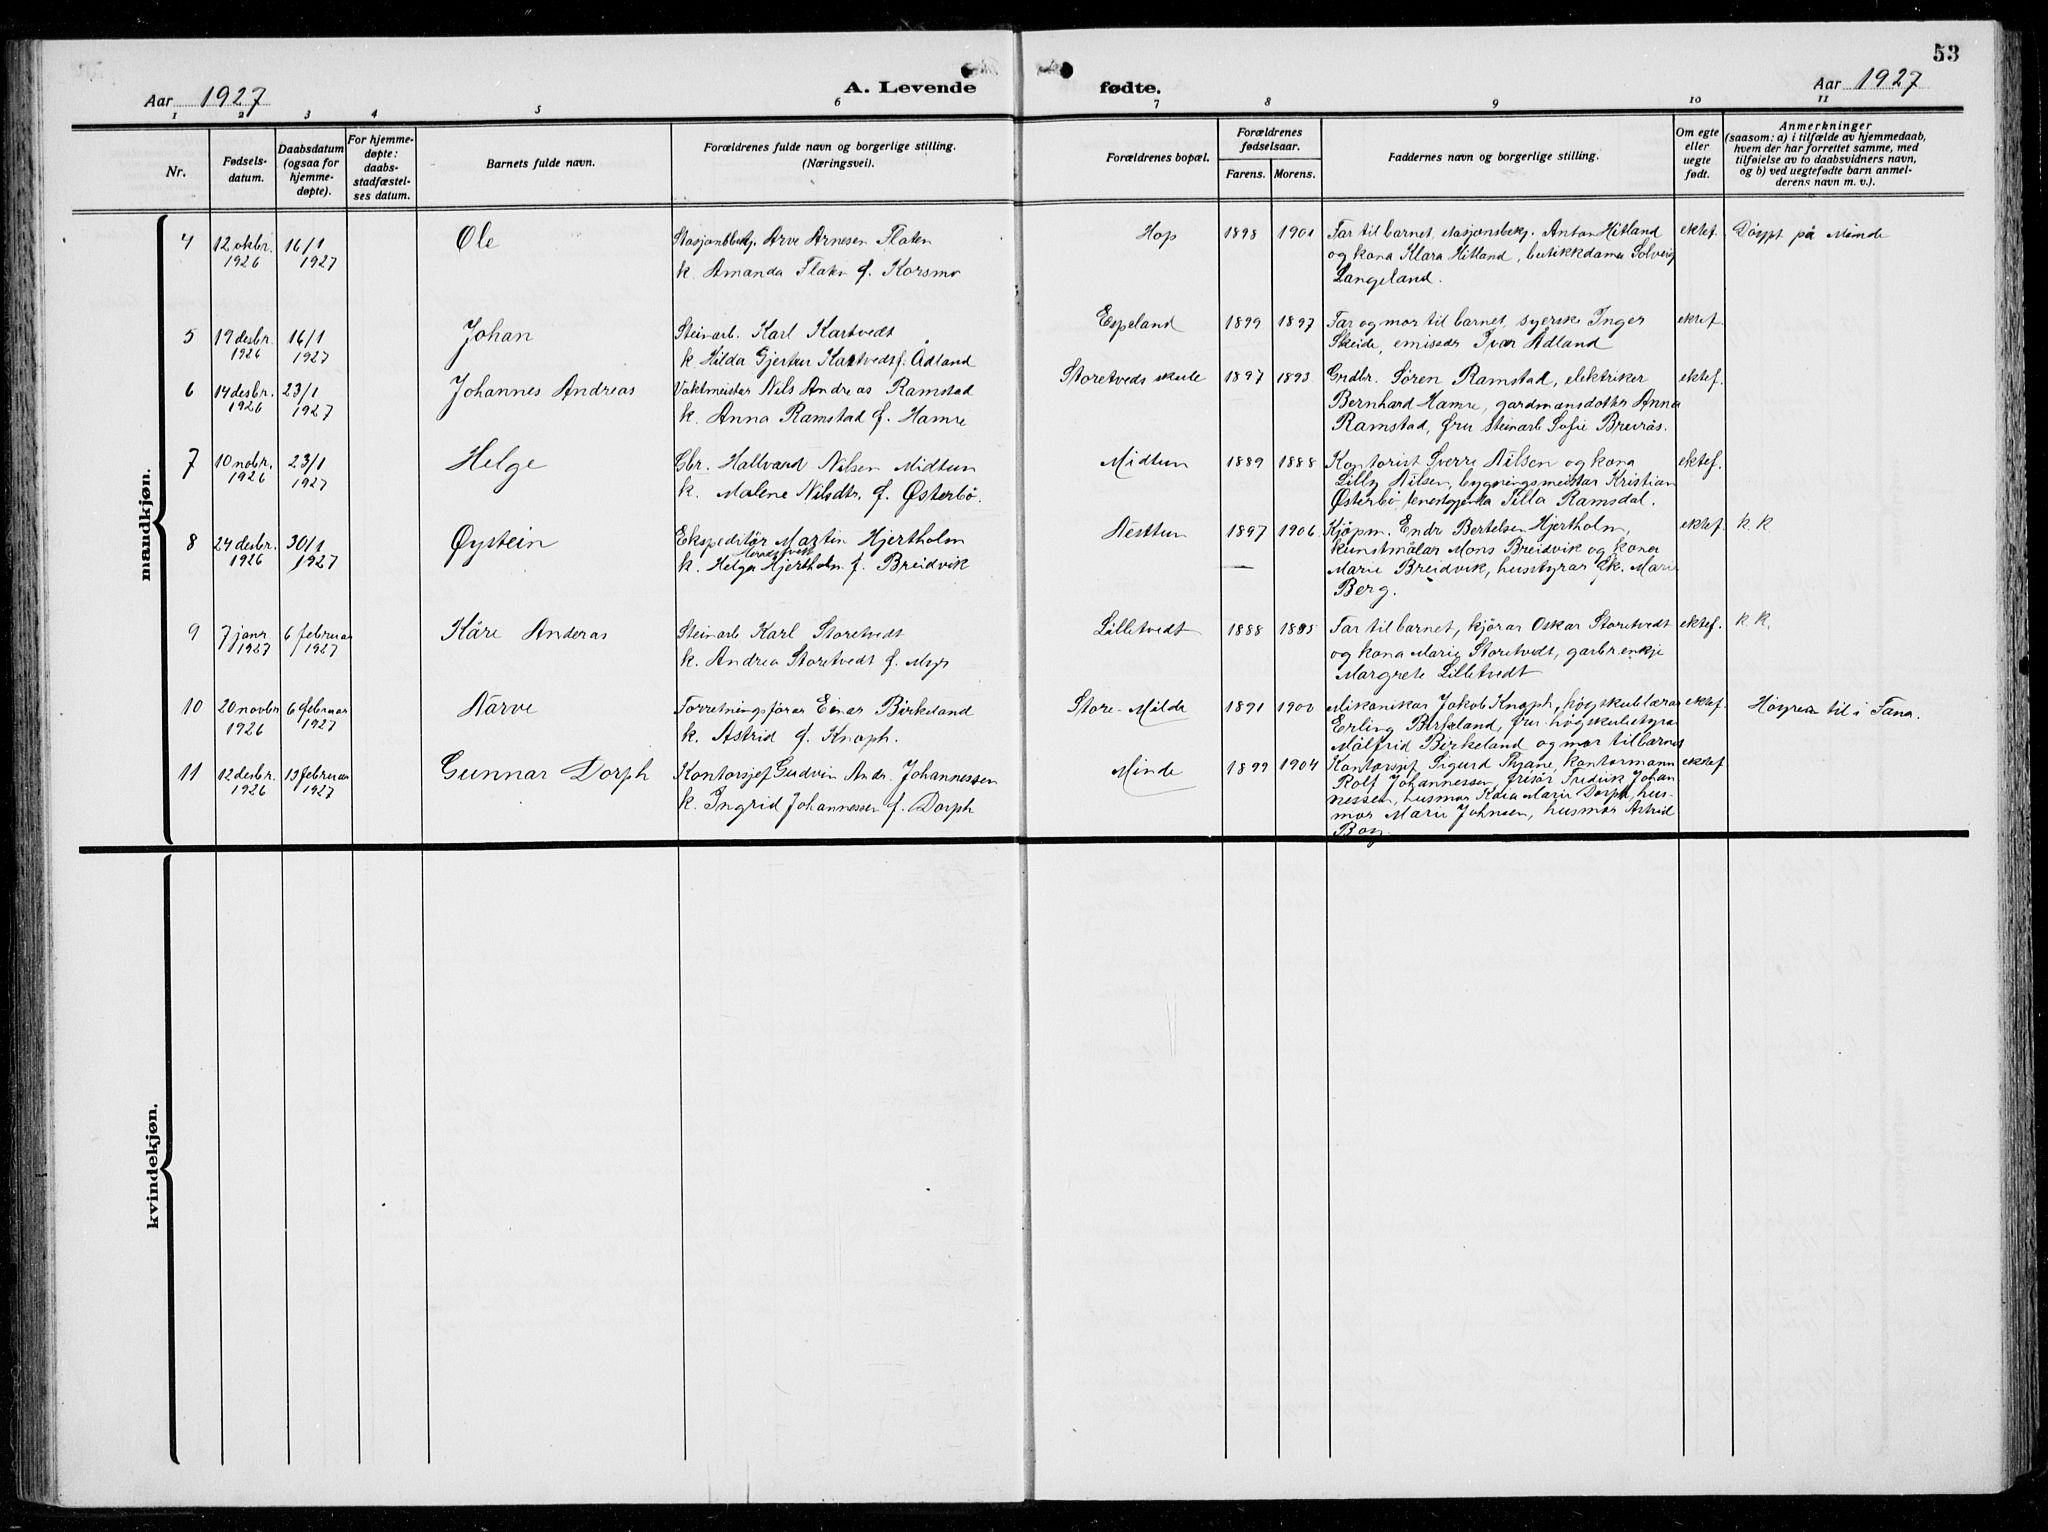 53
Aar 1927
A. Levende fødte.
Aar 1927
1 2 3 4 5 6 7 8 9 10 11
Nr.
Fødsels-
datum.
Daabsdatum
(ogsaa for
hjemme-
døpte).
For hjemme-
døpte:
daabs-
stadfæstel-
ses datum.
Barnets fulde navn.
Forældrenes fulde navn og borgerlige stilling.
(Næringsvei).
Forældrenes bopæl.
Forældrenes
fødselsaar.
Farens. Morens.
Faddernes navn og borgerlige stilling.
Om egte
eller
uegte
født.
Anmerkninger
(saasom: a) i tilfælde av hjemmedaab,
hvem der har forrettet samme, med
tilføielse av to daabsvidners navn,
og b) ved uegtefødte barn anmel-
derens navn m. v.).
mandkjøn.
4
12 okbr.
1926
16/1
1927
Ole
Stasjonsbetj. Arve Arnesen Flaten
k. Amanda Flaten f. Korsmo
Hop
1898 1901
Far til barnet, stasjonsbetj. Anton Hitland
og kona Klara Hitland, butikkdama Solveig
Langeland.
ektef.
Döypt på Minde
5
19 desbr.
1926
16/1
1927
Johan
Steinarb. Karl Kartvedt
k. Hilda Gjertur Kartvedt f. Ådland
Espeland
1899 1897
Far og mor til barnet, syerske Inger
Skeide, emisær Ivar Ådland
ektef.
6
14 desbr.
1926
23/1
1927
Johannes Andreas
Vaktmeister Nils Andreas Ramstad
k. Anna Ramstad f. Hamre
Storetveds skule
1897 1893
Grdbr. Sören Ramstad, elektriker
Bernhard Hamre, gardmannsdotter Anna
Ramstad, fru steinarb Sofie Breirås.
ektef.
7
10 nobr.
1926
23/1
1927
Helge
Gbr. Hallvard Nilsen Midtun
k. Malene Nilsdtr. f. Østerbö.
Midtun
1889 1888
Kontorist Sverre Nilsen og kona
Lilly Nilsen, bygningsmeistar Kristian
Østerbö, tenestgjenta Tilla Ramsdal.
ektef.
8
24 desbr.
1926
30/1
1927
Øystein
Ekspeditör Martin Hjertholm
k. Helga Hjertholm f. Breidvik
Nesttun
1897 1906
Kjöpm. Endre Bertelsen Hjertholm,
kunstmålar Mons Breidvik og kona
Marie Breidvik, husstyrar frk. Marie
Berg.
ektef.
k.k
9
7 janr
1927
6 februar
1927
Kåre Anderas
Steinarb Karl Storetvedt
k. Andrea Storetvedt f. Myr
Lilletvedt
1888 1895
Far til barnet, kjörar Oskar Storetvedt
og kona Marie Storetvedt, garbr.enkje
Margrete Lilletvedt
ektef.
k.k.
10
20 novbr
1926
6 februar
1927
Narve
Forretningsförar Einar Birkeland
k. Astrid f. Knoph.
Store-Milde
1891 1900
Mikanikar Jakob Knoph, högskulelærar
Erling Birkeland, fru högskulestyrar
Målfrid Birkeland og mor til barnet
ektef.
Höyrer til i Fana.
11
12 desbr.
1926
13 februar
1927
Gunnar Dorph
Kontorsjef Gudvin Andr. Johannessen
k. Ingrid Johannessen f. Dorph
Minde
1899 1904
Kontorsjef Sigurd Thyane kontormann
Rolf Johannessen, frisör Fredrik Johan
nessen, husmor Kaia Marie Dorph, hus-
mor Marie Johnsen, husmor Astrid
Boy.
ektef
kvindekjøn.